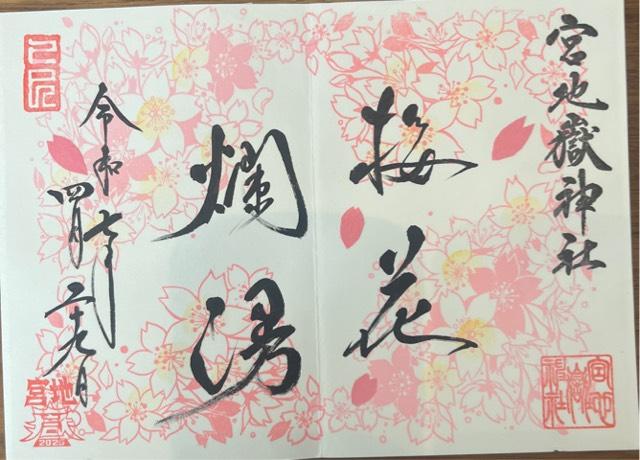 宮地嶽神社
桜花
爛漫
令和七年
四月二十九日
乙巳
宮地嶽神社
宮地嶽
2025